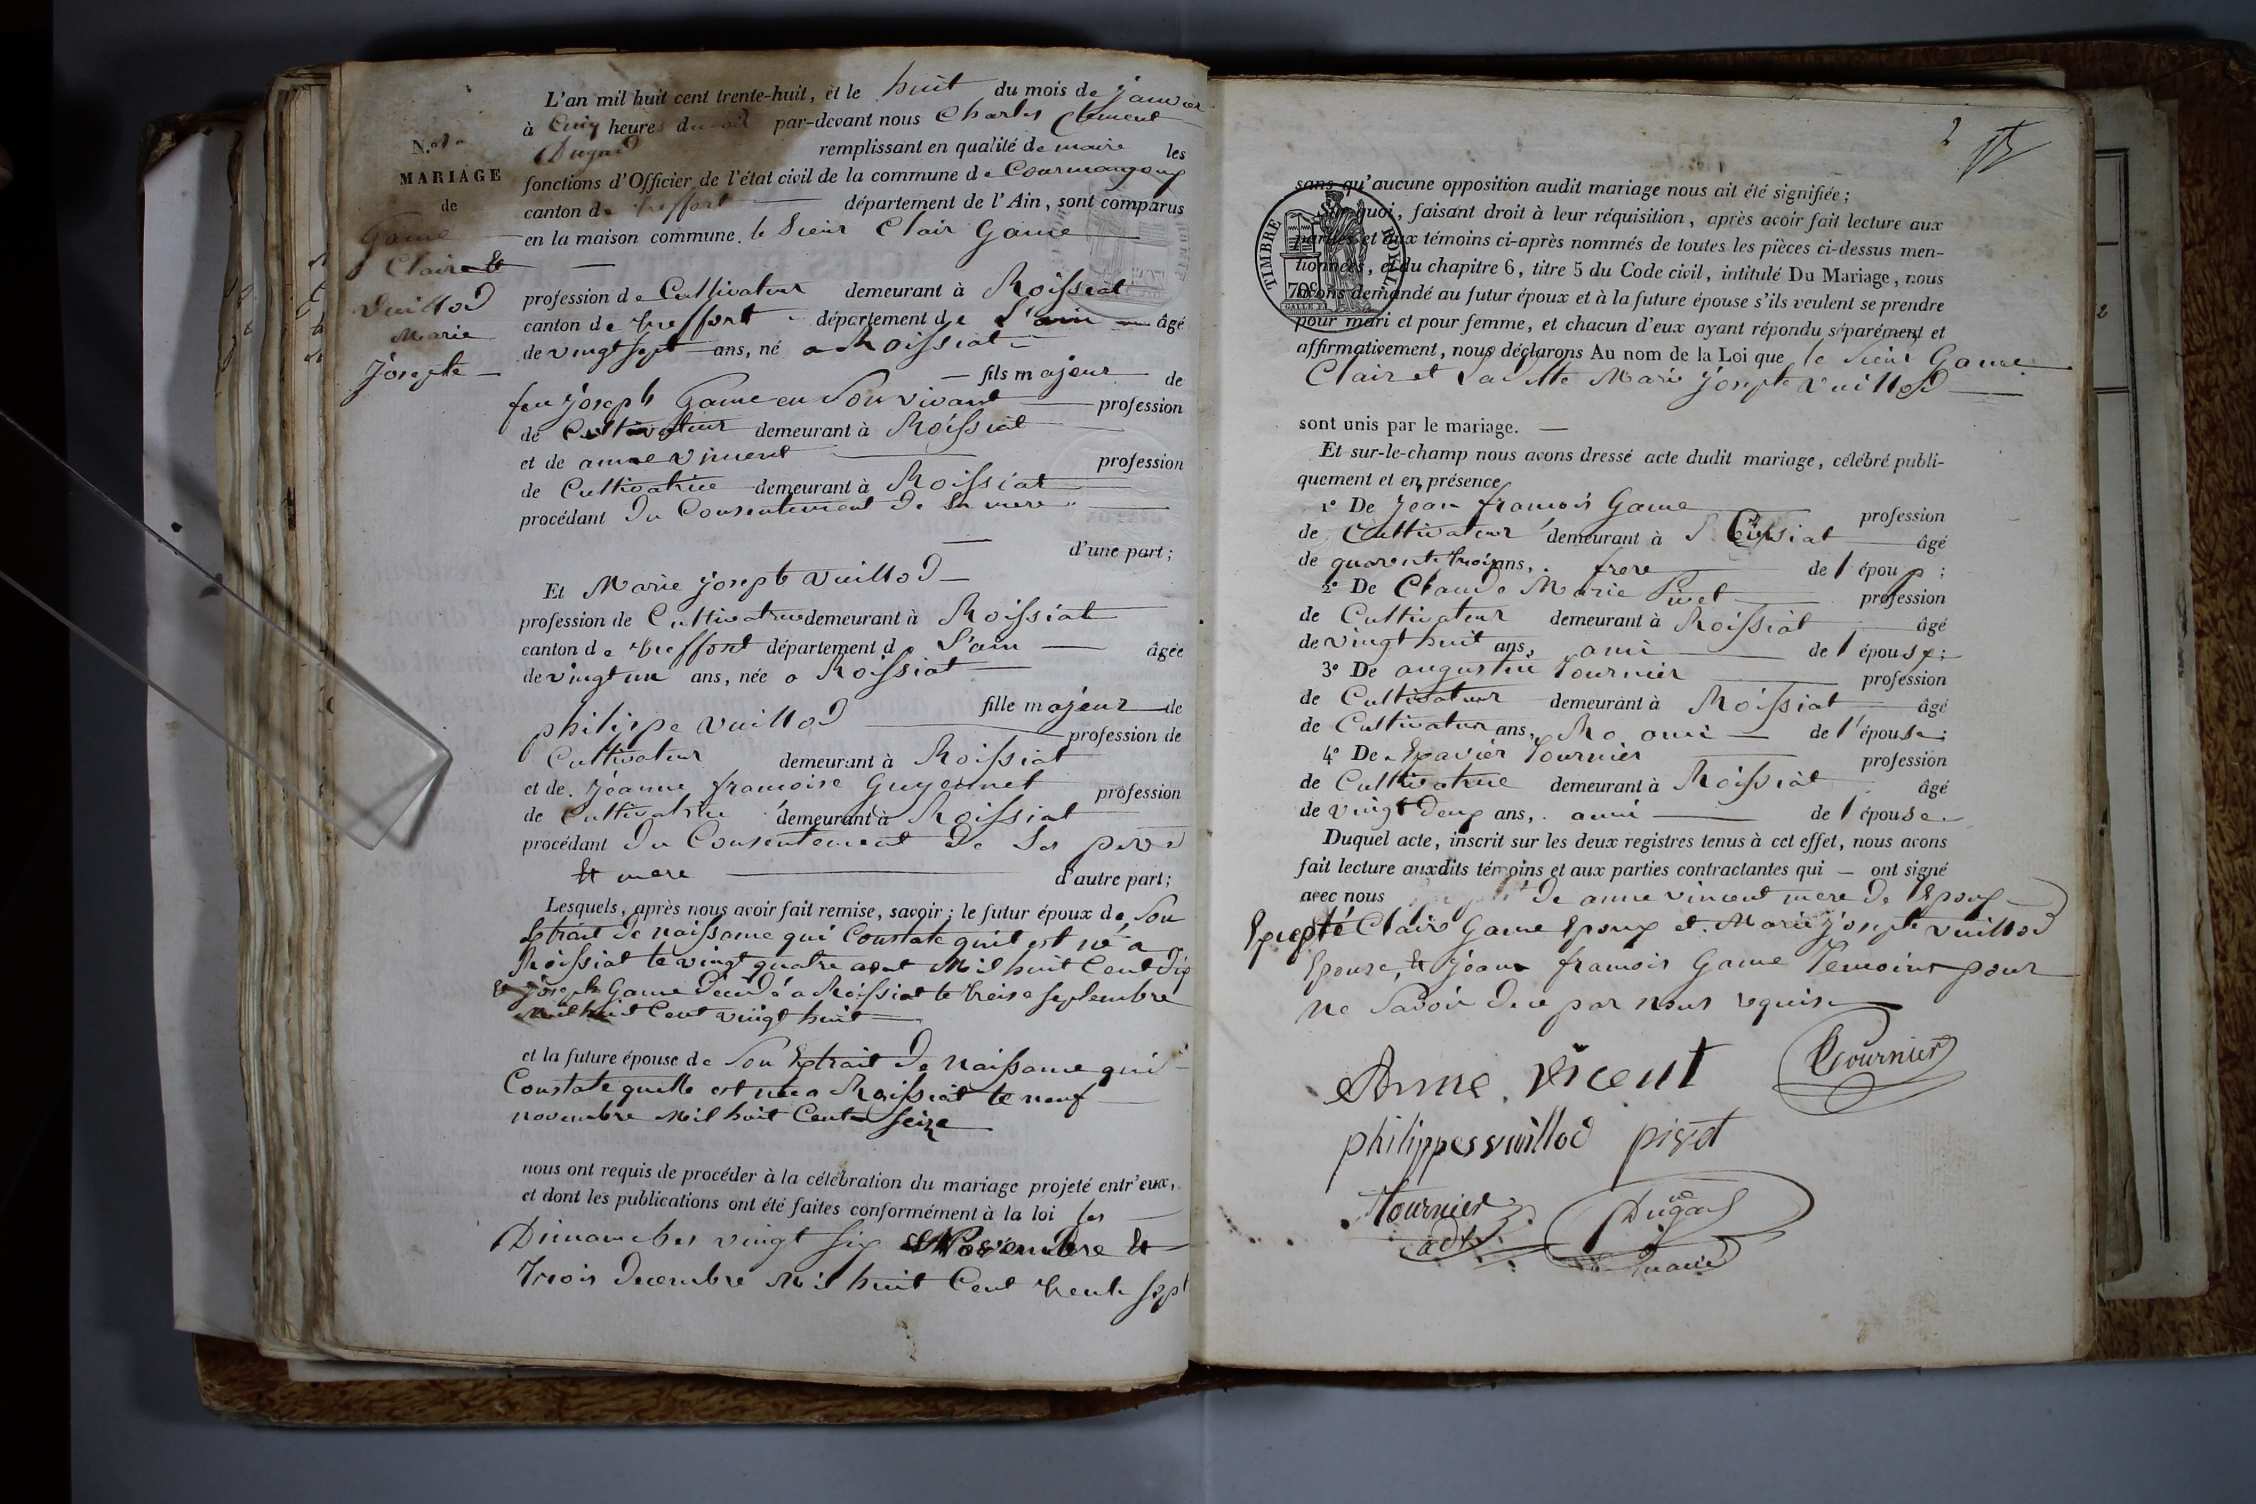 L'an mil huit cent trente-huit, et le huit du mois de janvier
à Cinq heures du soir par-devant nous Charles Clement
Dugad remplissant en qualité de maire les
fonctions d'Officier de l'état civil de la commune de Courmangoux
canton de treffort département de l'Ain, sont comparus
en la maison commune. le Sieur Clair Game
N.º
MARIAGE
de
Game
Clair et
Vuillod
Marie
Josepte
profession de Cultivateur demeurant à Roissiat
canton de treffort département de L'ain âgé
de vingt sept ans, né a Roissiat
fils majeur de
feu joseph Game en Son vivant profession
de Cultivateur demeurant à Roissiat
et de anne vincent profession
de Cultivatrice demeurant à Roissiat
procédant du Consentement de Sa mere
d'une part;
Et Marie josepte vuillod
profession de Cultivatrice demeurant à Roissiat
canton de treffort département de L'ain âgée
de vingt un ans, née a Roissiat
fille majeur de
philippe vuillod profession de
Cultivateur demeurant à Roissiat
et de. jéanne francoise Guyennet profession
de Cultivatrice demeurant à Roissiat
procédant du Consentement de Ses pere
et mere d'autre part;
Lesquels, après nous avoir fait remise, savoir: le futur époux de Son
Extrait de naissance qui Constate quil est né a
Roissiat le vingt quatre aout Mil huit Cent dix
et joseph Game décédé a Roissiat le treise septembre
mil huit Cent vingt huit
et la future épouse de Son Extrait de naissance qui
Constate quelle est née a Roissiat le neuf
novembre Mil huit Cent Seize
nous ont requis de procéder à la célébration du mariage projeté entr'eux,
et dont les publications ont été faites conformément à la loi les
Dimanches vingt six Novembre et
trois decembre Mil huit Cent trente sept
2
sans qu'aucune opposition audit mariage nous ait été signifiée;
Sur quoi, faisant droit à leur réquisition, après avoir fait lecture aux
parties et aux témoins ci-après nommés de toutes les pièces ci-dessus men-
tionnées, et du chapitre 6, titre 5 du Code civil, intitulé Du Mariage, nous
avons demandé au futur époux et à la future épouse s'ils veulent se prendre
pour mari et pour femme, et chacun d'eux ayant répondu séparément et
affirmativement, nous déclarons Au nom de la Loi que le Sieur Game
Clair et Ladite Marie josepte vuillod
TIMBRE ROYAL
70c
sont unis par le mariage.
Et sur-le-champ nous avons dressé acte dudit mariage, célébré publi-
quement et en présence
1º De Jean francois Game profession
de Cultivateur demeurant à Roissiat âgé
de quarente trois ans, frere de l'époux;
2º De Claude Marie Pivet profession
de Cultivateur demeurant à Roissiat âgé
de vingt huit ans, ami de l'épouse;
3º De augustin tournier profession
de Cultivateur demeurant à Roissiat âgé
de Cultivateur ans, ami de l'épouse;
4º De Expavier tournier profession
de Cultivatrice demeurant à Roissiat âgé
de vingt deux ans, ami de l'épouse
Duquel acte, inscrit sur les deux registres tenus à cet effet, nous avons
fait lecture auxdits témoins et aux parties contractantes qui — ont signé
avec nous de anne vincent mere de l'Epoux
Excepté Clair Game Epoux et Marie josepte vuillod
Epouse, et jean francois Game temoins pour
ne Savoir de ce par nous requis
Anne vicent
Tournier
philippes vuillod pivet
Tournier
adt
Dugad
maire